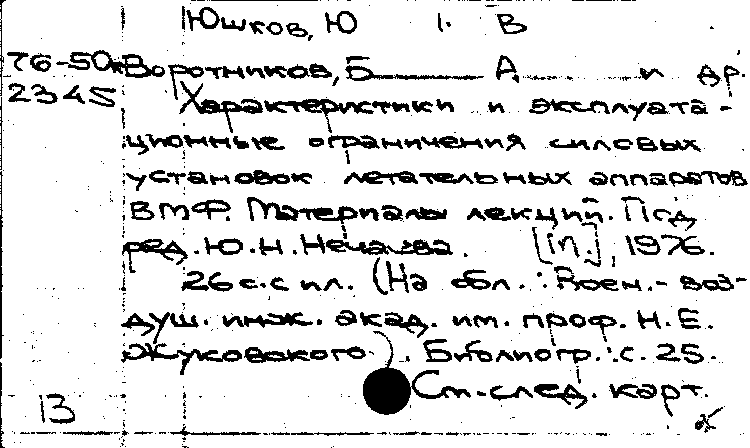 Юшков, Ю 1. В
76-50к Воротников, Б А. и др.
2345 Характеристики и эксплуата-
ционные ограничения силовых
установок летательных аппаратов
ВМФ. Материалы лекций. Под
ред. Ю.Н. Нечаева. [М.], 1976.
26 с. с ил. (На обл.: Воен.-воз-
душ. инж. акад. им. проф. Н.Е.
Жуковского). Библиогр.: с. 25.
См. след. карт.
13